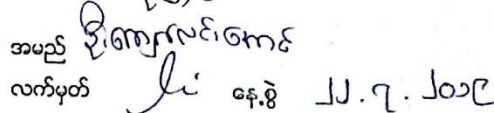 အမည် ဦးကျော်လင်းကောင်
လက်မှတ် နေ့စွဲ ၂၂.၇.၂၀၁၉